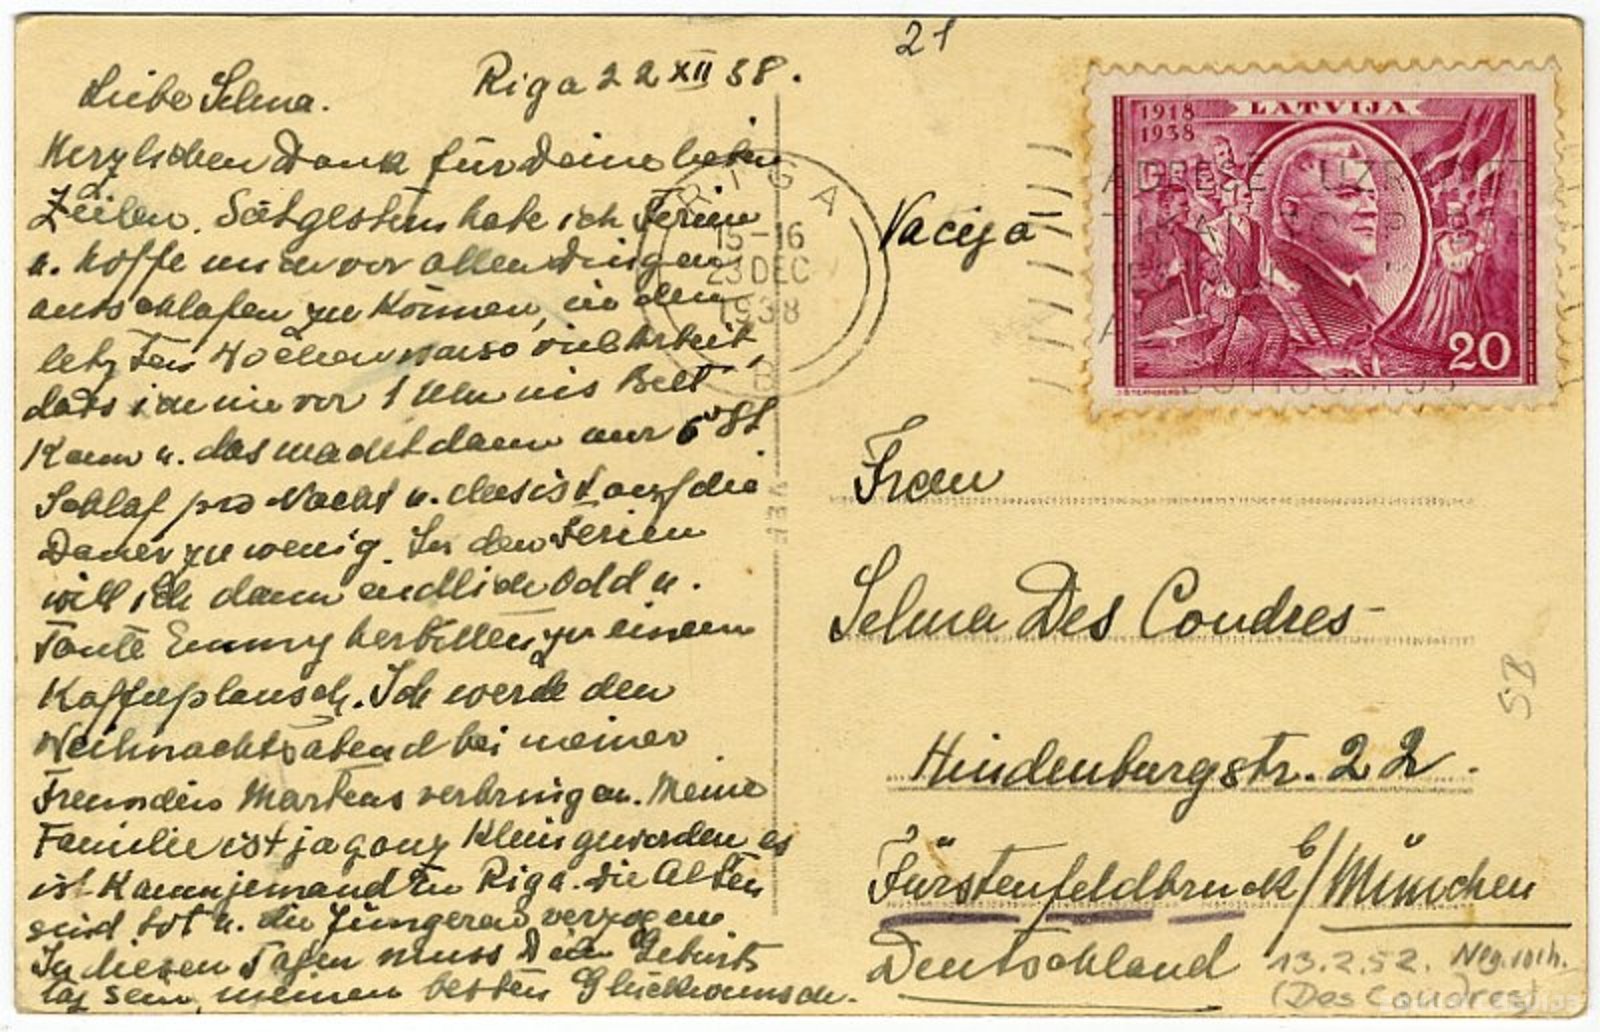 21
Riga 22 XII 38.
Liebe Selma.
Herzlichen Dank für Deine lieben
Zeilen. Seit gestern habe ich Ferien
u. hoffe mich vor allen Dingen
ausschlafen zu können, in den
letzten Wochen war so viel Arbeit,
dass ich nie vor 1 Uhr ins Bett
kam u. das macht dann nur 6 St
Schlaf pro Nacht u. das ist auf die
Dauer zu wenig. In den Ferien
will ich dann endlich Odd u.
Tante Emmy herbitten zu einem
Kaffeeplausch. Ich werde den
Weihnachtsabend bei meiner
Freundin Martens verbringen. Meine
Familie ist ja ganz klein geworden es
ist kaum jemand in Riga. Die Alten
sind tot u. die Jüngeren verzogen.
In diesen Tagen muss Dein Geburts
tag sein, meinen besten Glückwunsch.
RIGA
15-16
23 DEC
1938
B
1918
1938
LATVIJA
20
ADRESĒ UZR
Vācijā
Frau
Selma Des Coudres
Hindenburgstr. 22.
Fürstenfeldbruck b/München
Deutschland
13.2.52.
(Des Coudres)
52